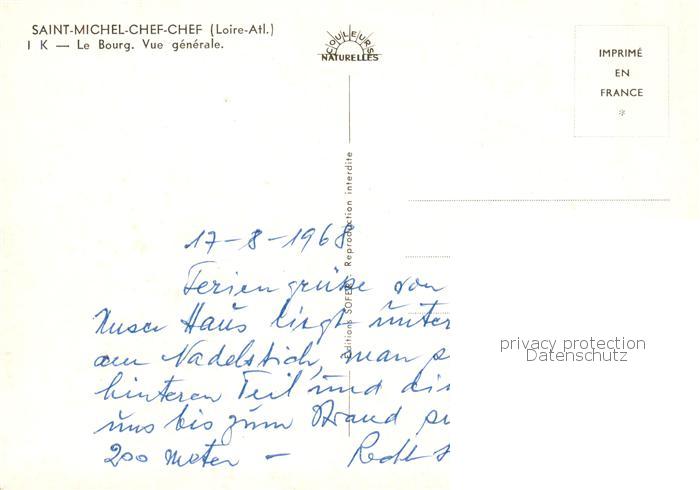 SAINT-MICHEL-CHEF-CHEF (Loire-Atl.)
I K — Le Bourg. Vue générale.
COULEURS
NATURELLES
IMPRIMÉ
EN
FRANCE
*
Editions SOFER - Reproduction interdite
17-8-1968
Feriengrüße von
Unser Haus liegt unter
dem Nadelstich, man s
hinteren Teil und di
uns bis zum Strand s
200 meter -
privacy protection
Datenschutz